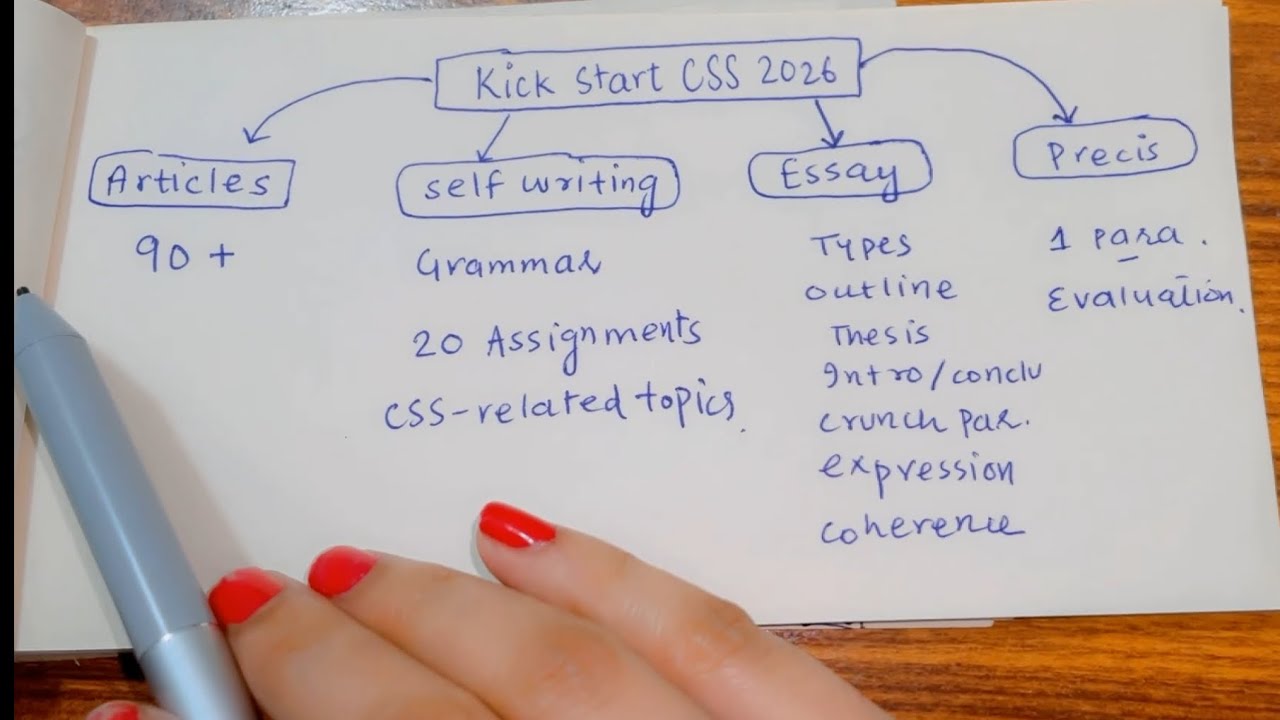 Kick Start CSS 2026
Articles
90 +
self writing
Grammar
20 Assignments
CSS-related topics.
Essay
Types
outline
Thesis
Intro/conclu
crunch par.
expression
coherence
Precis
1 para.
Evaluation.